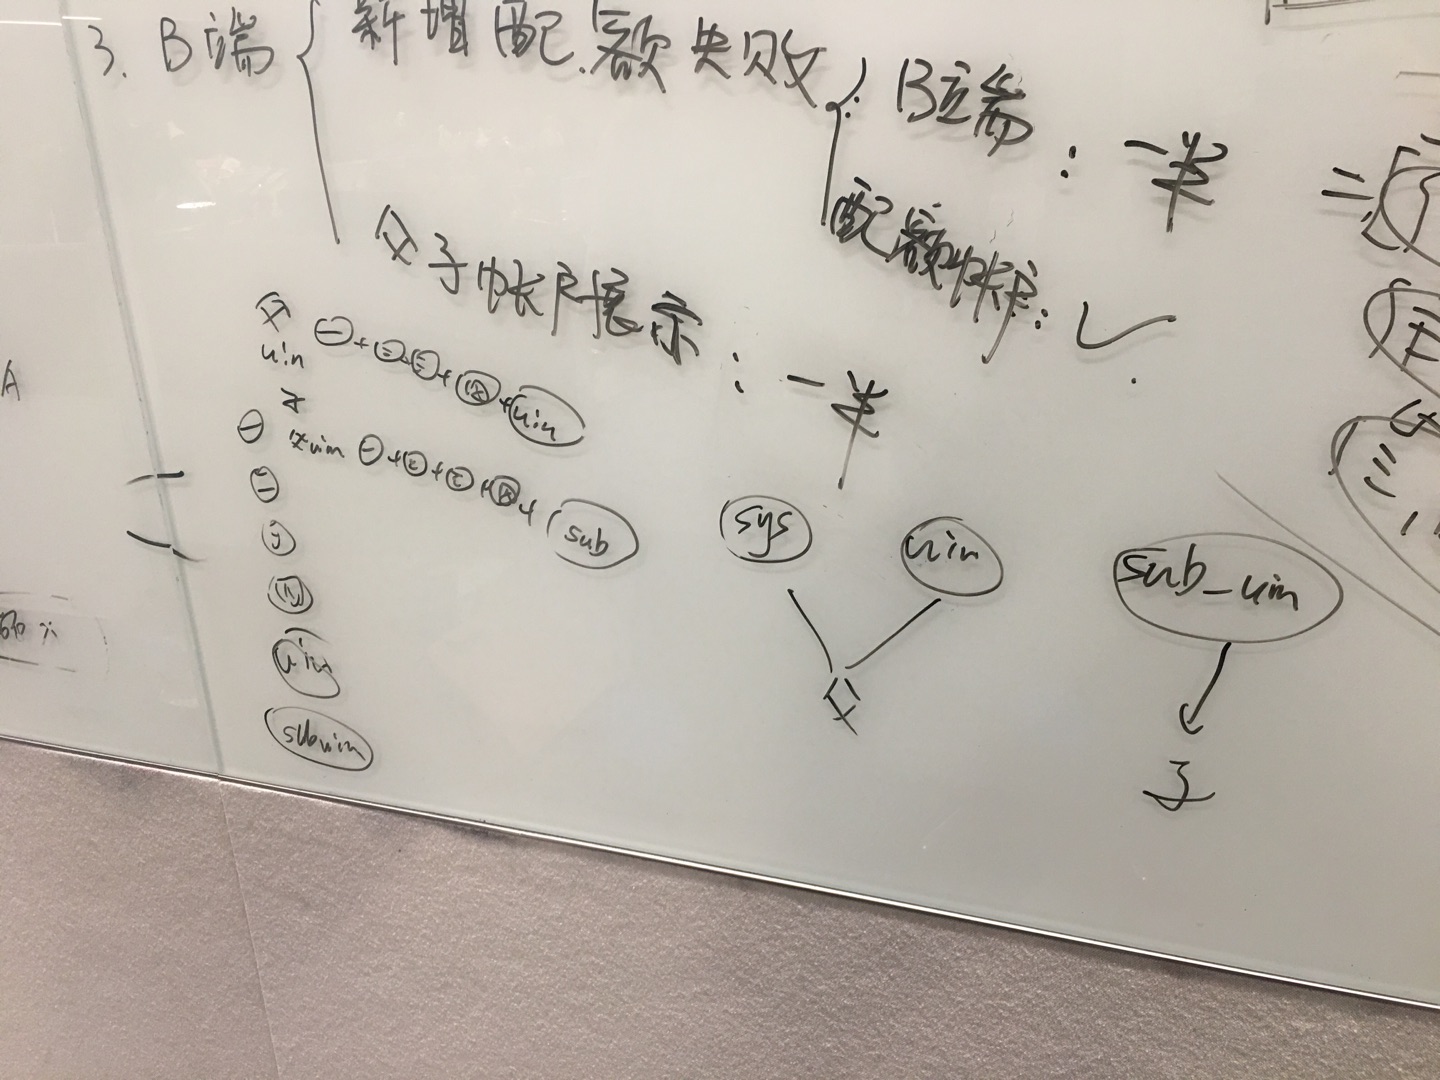 3. B端 { 新增配额失败 { B端 : 一半
配额帐户: ✓
父子帐户展示 : 一半
父
uin ㊀+㊁+㊂+㊃+uin
子
uin ㊀+㊁+㊂+㊃+sub
㊀
㊁
㊂
㊃
uin
subuin
sys uin sub_uin
父 子
A
二
三